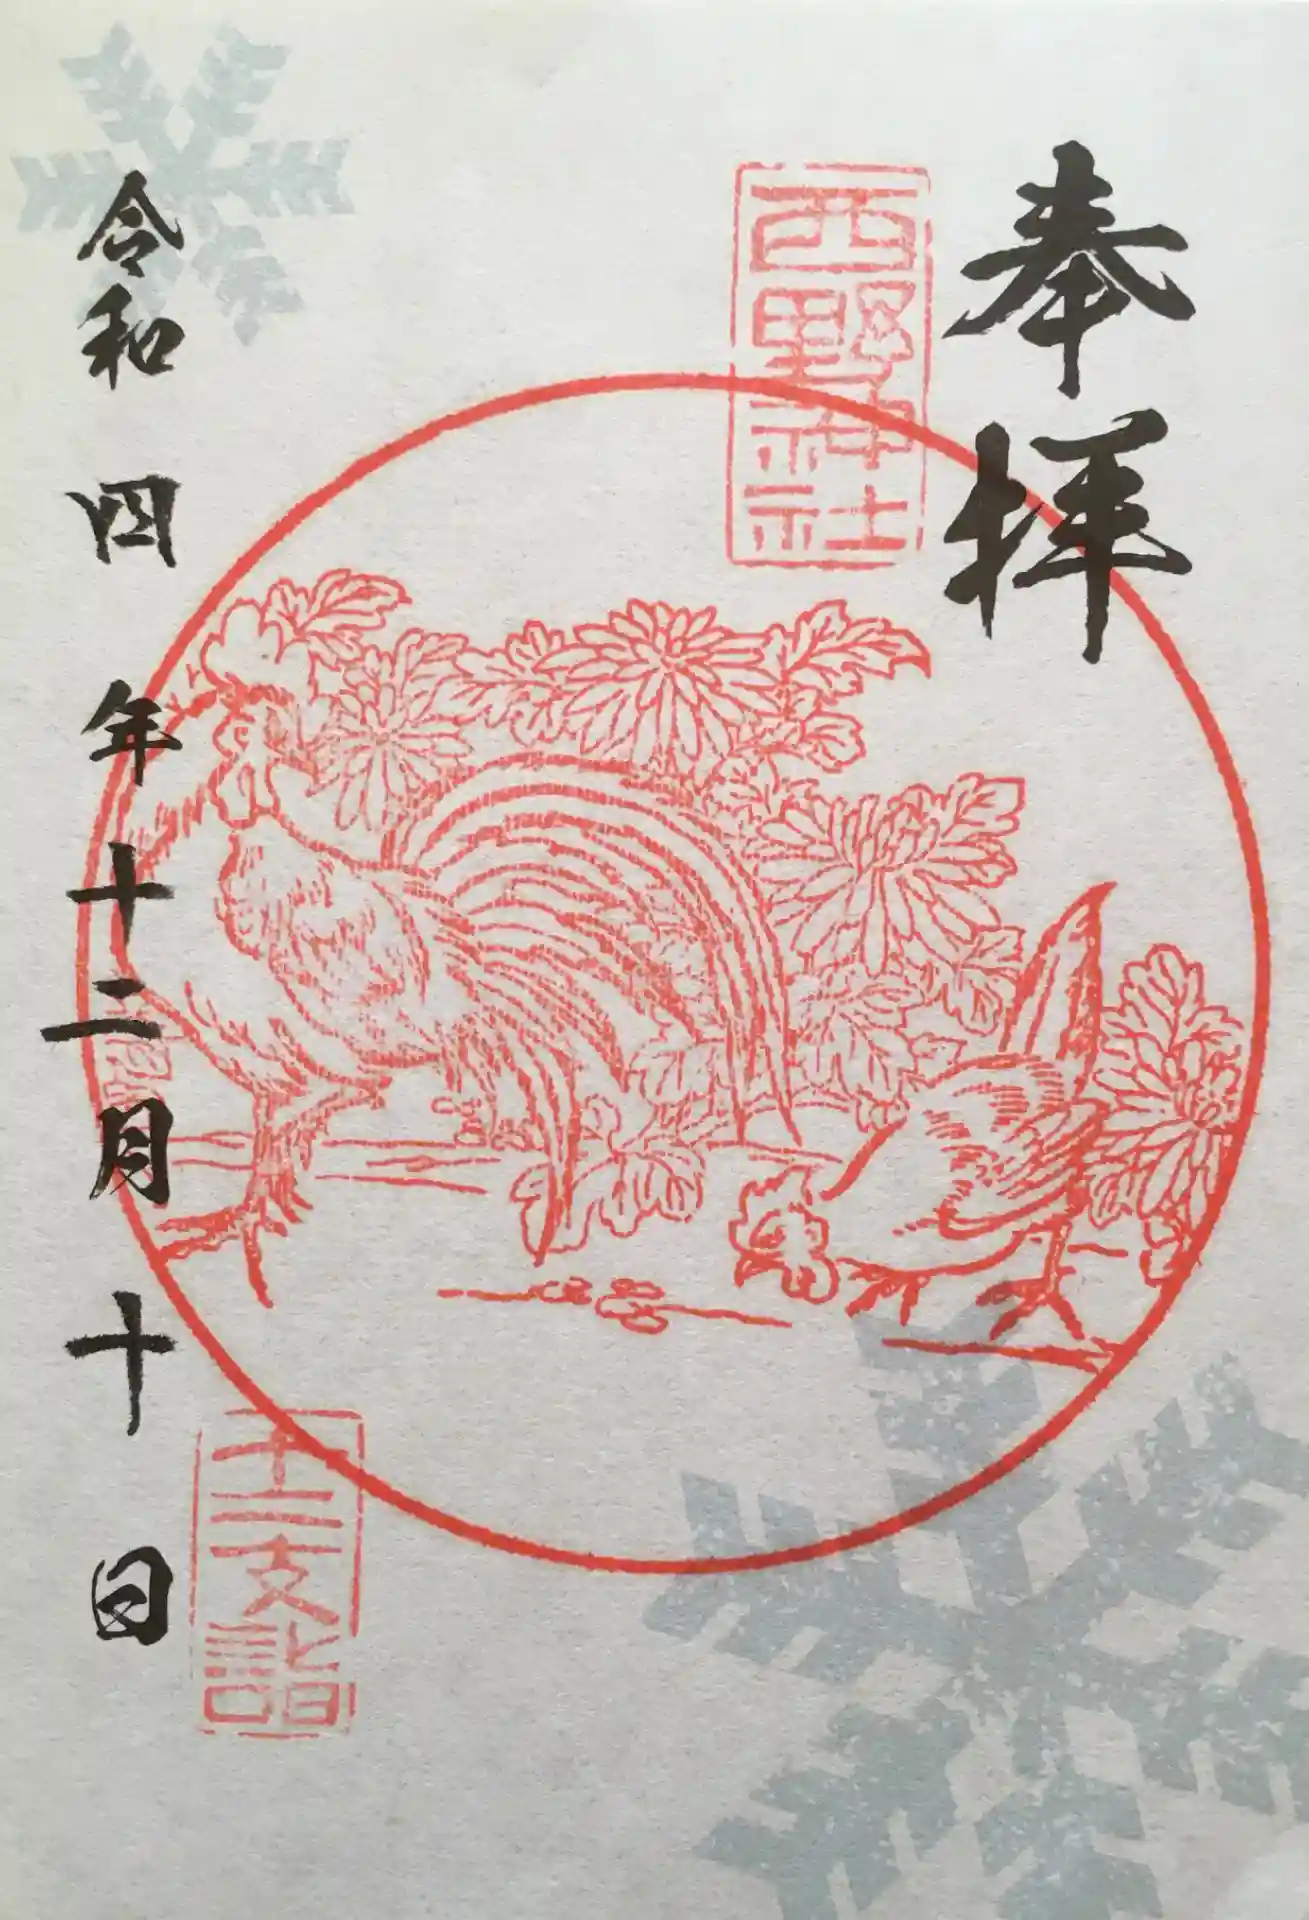 奉拝
西野神社
十二支詣
令和四年十二月十日